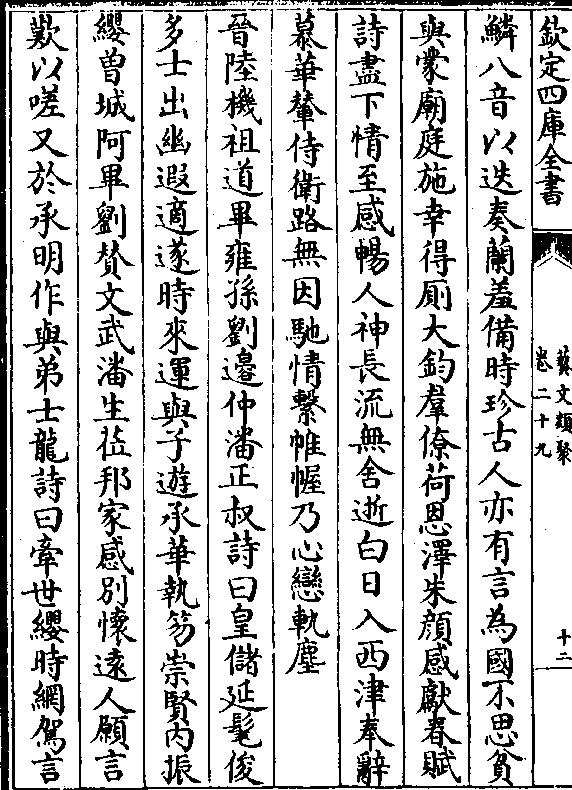 欽定四庫全書
藝文類聚
卷二十九
十二
鱗八音以迭奏蘭羞備時珍古人亦有言為國不思貧
與蒙廟庭施幸得厠大鈞羣僚荷恩澤朱顔感獻春賦
詩盡下情至感暢人神長流無舍逝白日入西津奉辭
慕華輦侍衛路無因馳情繫帷幄乃心戀軌塵
晉陸機祖道畢雍孫劉邉仲潘正叔詩曰皇儲延髦俊
多士出幽遐適遂時來運與子遊承華執笏崇賢内振
纓曽城阿畢劉贊文武潘生莅邦家感別懷逺人願言
歎以嗟又於承明作與弟士龍詩曰牽世纓時網駕言